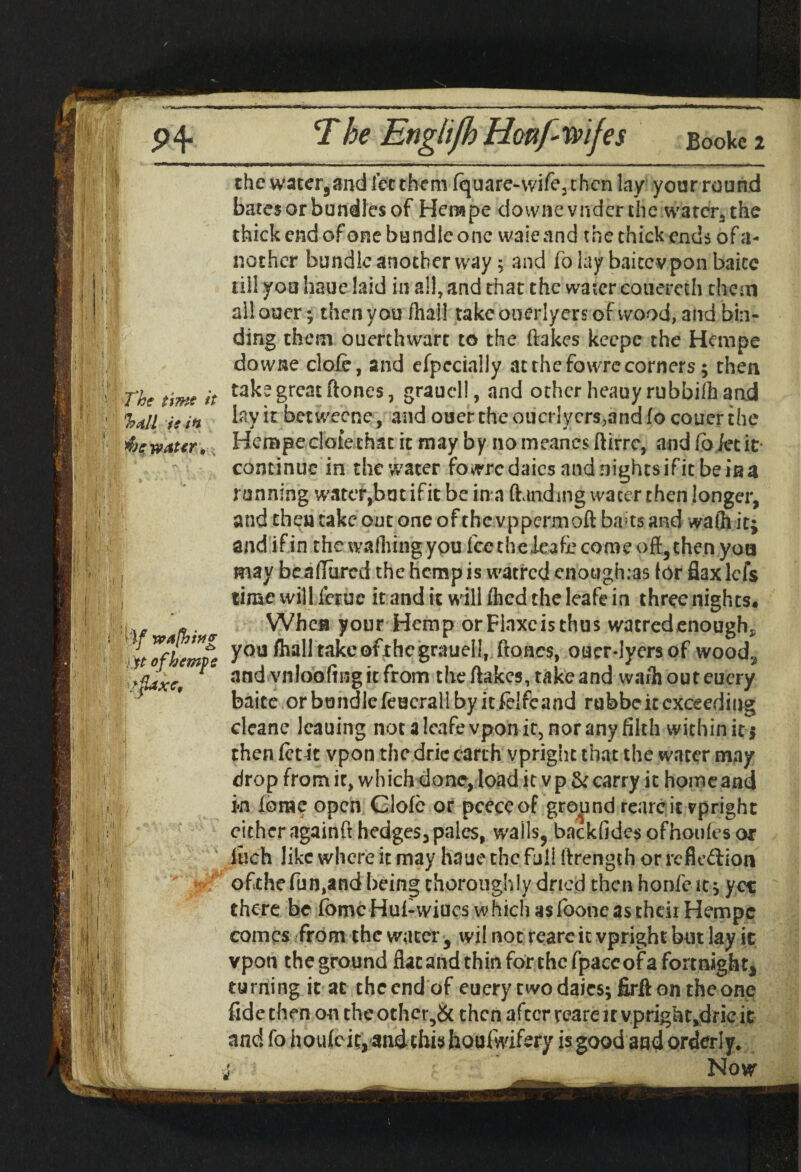 94 The Engliſh Houſ-wifes Booke 2
the water, and ſet them ſquare-wiſe, then lay your round
bates or bundles of Hempe downe vnder the water, the
thick end of one bundle one waie and the thick ends of a-
nother bundle another way; and ſo lay baite vpon baite
till you haue laid in all, and that the water couereth them
all ouer; then you ſhall take ouerlyers of wood, and bin-
ding them ouerthwart to the ſtakes keepe the Hempe
downe cloſe, and eſpecially at the fowre corners; then
take great ſtones, grauell, and other heauy rubbiſh and
lay it betweene, and ouer the ouerlyers, and ſo couer the
Hempe cloſe that it may by no meanes ſtirre, and ſo let it
continue in the water fowre daies and nights if it be in a
running water, but if it be in a ſtanding water then longer,
and then take out one of the vppermoſt baits and waſh it;
and if in the waſhing you ſee the leafe come off, then you
may be aſſured the hemp is watred enough: as for flax leſs
time will ſerue it and it will ſhed the leafe in three nights.
When your Hemp or Flaxe is thus watred enough,
you ſhall take of the grauell, ſtones, ouer-lyers of wood,
and vnlooſing it from the ſtakes, take and waſh out euery
baite or bundle ſeuerall by it ſelfe and rubbe it exceeding
cleane leauing not a leafe vpon it, nor any filth within it;
then ſet it vpon the drie earth vpright that the water may
drop from it, which done, load it vp & carry it home and
in ſome open Cloſe or peece of ground reare it vpright
either againſt hedges, pales, walls, backſides of houſes or
ſuch like where it may haue the full ſtrength or reflection
of the ſun, and being thoroughly dried then houſe it; yet
there be ſome Huſ-wiues which as ſoone as their Hempe
comes from the water, wil not reare it vpright but lay it
vpon the ground flat and thin for the ſpace of a fortnight,
turning it at the end of euery two daies; firſt on the one
ſide then on the other, & then after reare it vpright, drie it
and ſo houſe it, and this houſwifery is good and orderly.
Now
The time it
ſhall ie in
the water.
Of waſhing
it of hempe
flaxe.